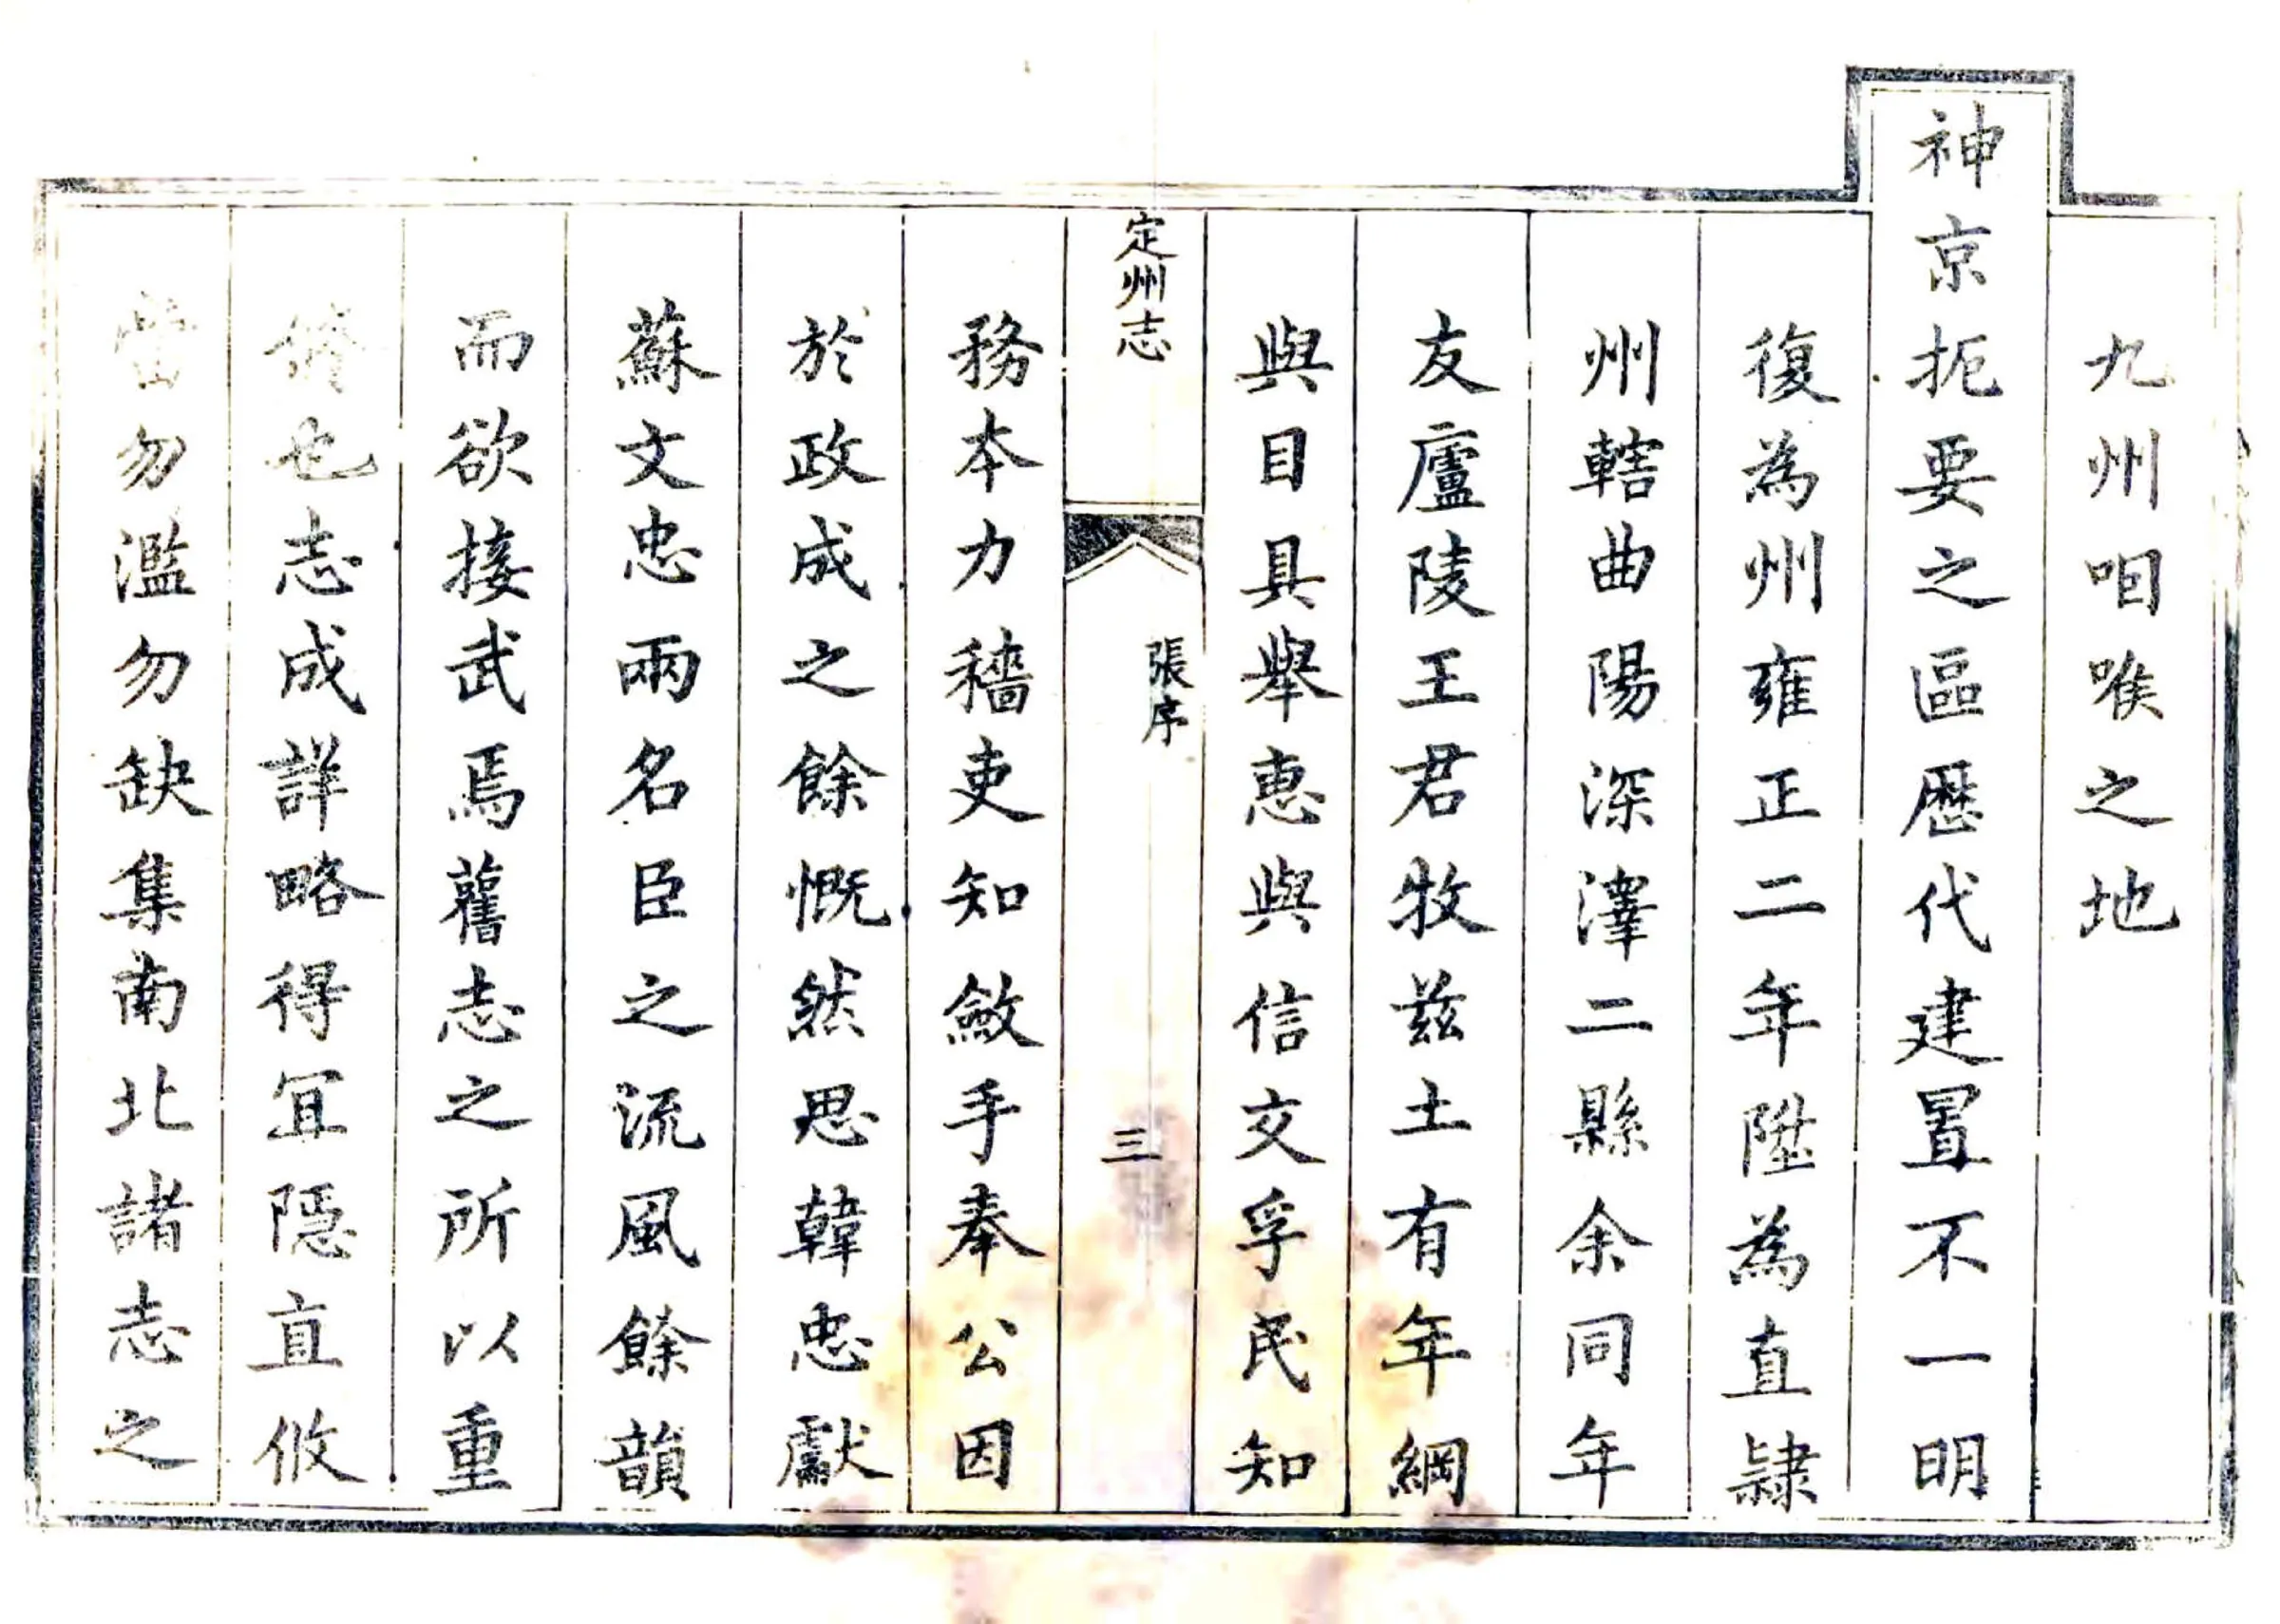 九州咽喉之地
神京扼要之區歷代建置不一明
復為州雍正二年陞為直隸
州轄曲陽深澤二縣余同年
友廬陵王君牧茲土有年綱
與目具舉惠與信交孚民知
定州志
張序
三
務本力穡吏知斂手奉公因
於政成之餘慨然思韓忠獻
蘇文忠兩名臣之流風餘韻
而欲接武焉舊志之所以重
脩也志成詳略得冝隠直攸
當勿濫勿缺集南北諸志之